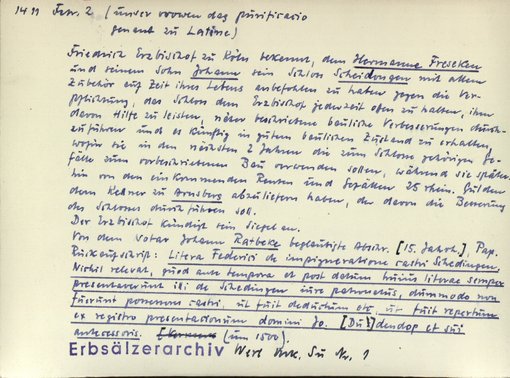 1411 Febr. 2 (unser vrowen dag purificacio
genant zu Latine)
Friedrich Erzbischof zu Köln bekennt, dem Hermanne Fresken
und seinem Sohn Johann sein Schloss Scheidongen mit allem
Zubehör auf Zeit ihres Lebens anbefohlen zu haben gegen die Ver-
pflichtung, das Schloss dem Erzbischof jederzeit offen zu halten, ihm
davon Hilfe zu leisten, näher beschriebene bauliche Verbesserungen durch-
zuführen und es künftig in gutem baulichen Zustand zu erhalten,
wofür sie in den nächsten 2 Jahren die zum Schlosse gehörigen Ge-
fälle zum vorbeschriebenen Bau verwenden sollen, während sie später-
hin von den einkommenden Renten und Gefällen 25 rhein. Gulden
dem Kellner zu Arnsberg abzuliefern haben, der davon die
des Schlosses durchführen soll.
Der Erzbischof kündigt sein Siegel an.
Von dem Notar Johann Ratbeke beglaubigte Abschr. [15. Jahrh.], Pap.
Rückaufschrift: Litera Federici de impigneratione castri Schedingen.
Nichil relevat, quod ante tempora et post datum huius literae semper
presentaverunt illi de Schedingen iure patronatus, dummodo non
fuerunt ponemus castri, ut fuit deductum etc, ut fuit repertum
ex registro presentationum domini Jo. dendop et sui
antecessoris. (um 1500).
Erbsälzerarchiv Werl Urk. Su Nr. 1